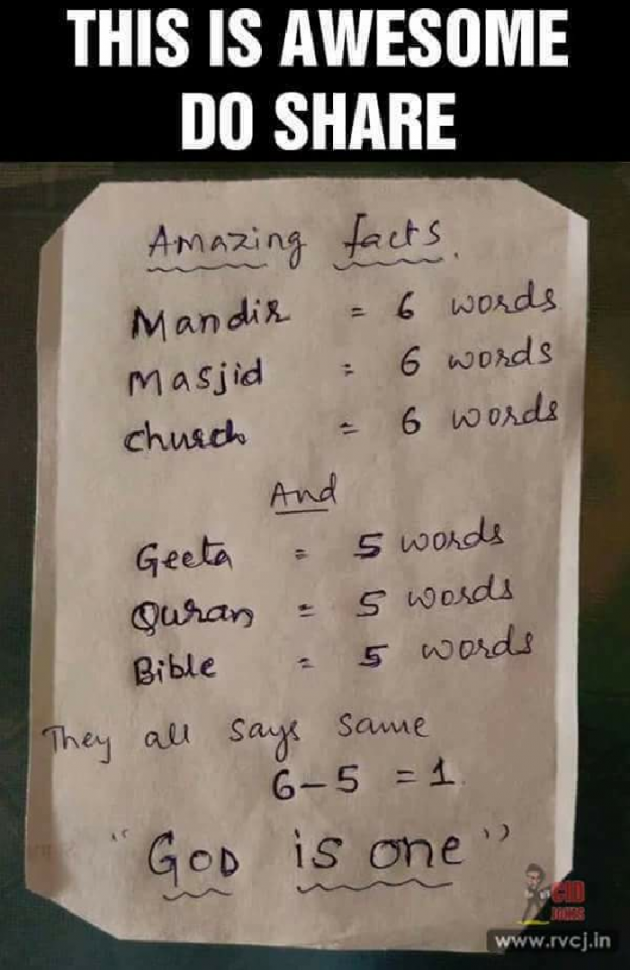 THIS IS AWESOME
DO SHARE
Amazing facts.
Mandir = 6 words
Masjid = 6 words
church = 6 words
And
Geeta = 5 words
Quran = 5 words
Bible = 5 words
They all says same
6-5 = 1.
"GOD is one"
CID
JOKES
www.rvcj.in